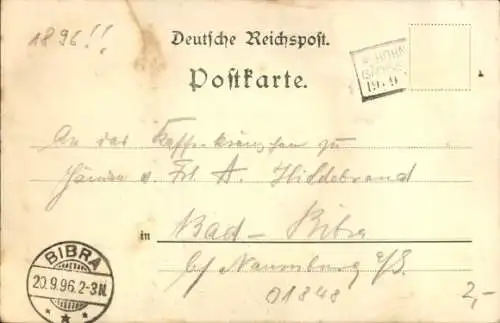 1896!!
Deutsche Reichspost.
Postkarte.
19. 9
An das Kaffeekränzchen zu
Händen v. Frl. A. Hildebrand
in Bad-Bibra
b/ Naumburg a/S.
BIBRA
20.9.96.2-3N.
01848
2,-